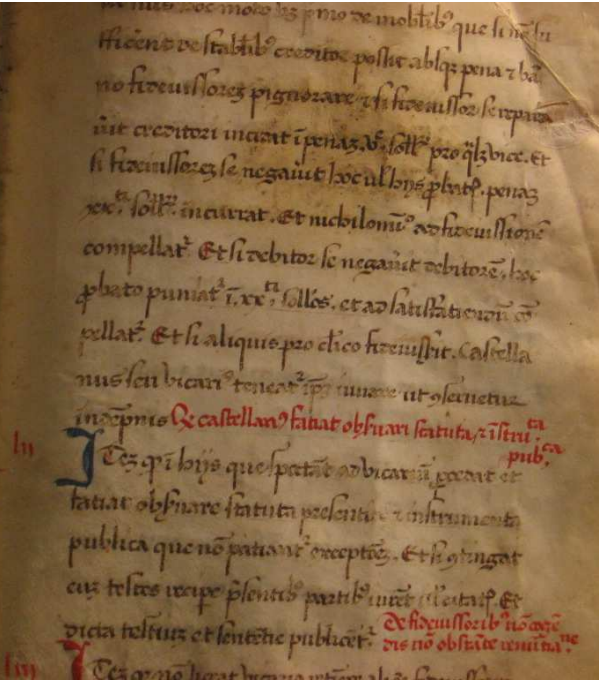 in huius hoc modo q̄ p̄mo de mobilib᷒ que si nō su
fficerēt de stabilib᷒ creditor possit absq̨ pena ⁊ bā
no fideiussores pignorare ⁊ si fideiussor se repara
uit creditori incidat ī penaȝ v. soll. pro ql̄ȝ vice. Et
si fideiussores se negauīt hoc ul̄ hijs ꝓbat. penaȝ
xx.ti soll. incurrat. Et nichilomī᷒ ad fideiussionē
compellat᷑. Et si debitor se negauīt debitorē, hoc
ꝓbato puniat᷑ ī. xx.ti sollos. et ad satisfatiendū cō
pellat᷑. Et si aliquis pro cl̄ico fideiuss̄it. Castella
nus seu vicari᷒ teneat᷑ ip̄ȝ iuuare ut ꝯseruetur
indēpnis Q castellan᷒ fatiat obs̄uari statuta, ⁊ īstru.ta
pub.ca
lii
Iteȝ q ī hijs que spectāt ad vicariū et
fatiat obs̄uare statuta presentia ⁊ instrumenta
publica que nō patiant᷑ exceptōeȝ. Et si ꝯtingat
euȝ testes recipe p̄sentib᷒ partib᷒ iurēt Et
dicta testiuȝ et sententie publicēt᷑. De fideiussorib᷒ nō
dis nō obstāte renūtia.ne
liii
Iteȝ q nō liceat vicario